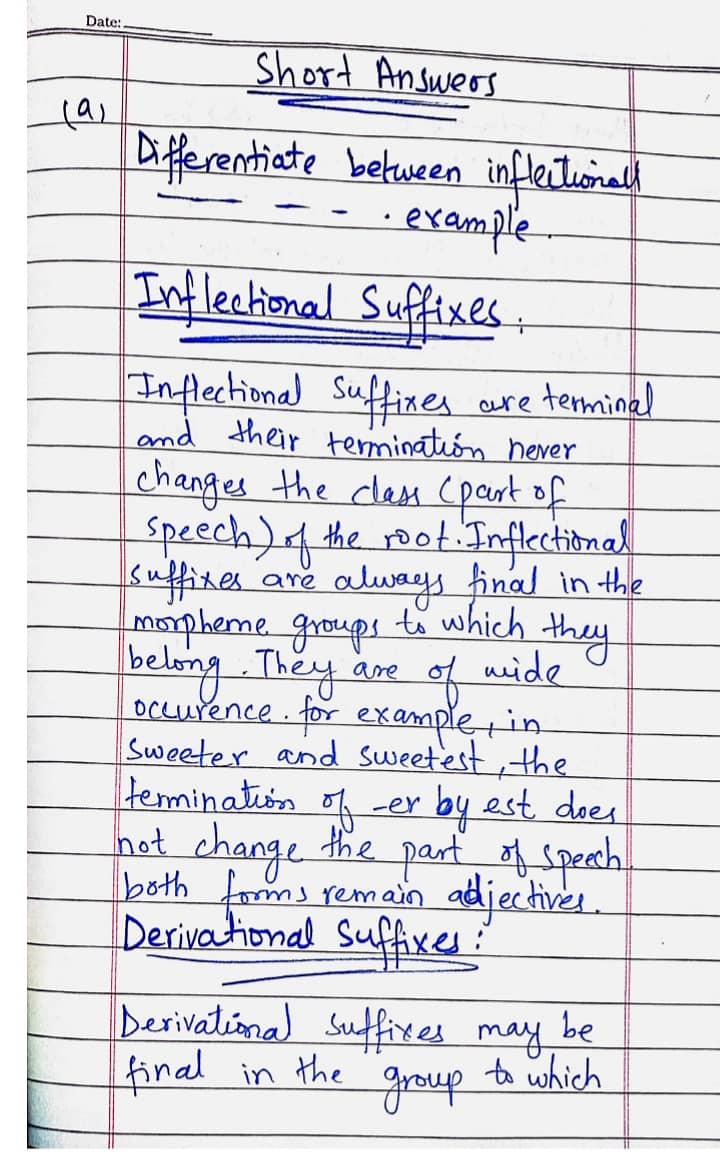 Date:
Short Answers
(a)
Differentiate between inflectional
— — - - . example.
Inflectional Suffixes :
Inflectional Suffixes are terminal
and their termination never
changes the class (part of
speech) of the root. Inflectional
suffixes are always final in the
morpheme groups to which they
belong. They are of wide
occurence. for example, in
Sweeter and sweetest, the
termination of -er by est does
not change the part of speech
both forms remain adjectives.
Derivational Suffixes :
Derivational suffixes may be
final in the group to which